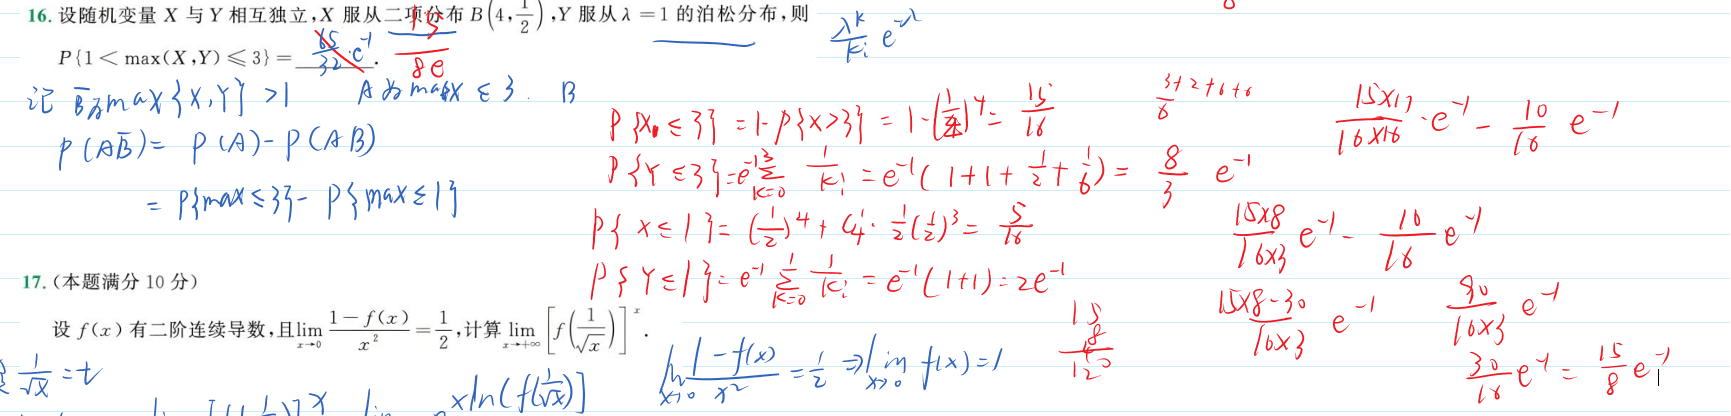 16. 设随机变量 X 与 Y 相互独立,X 服从二项分布 B(4, 1/2),Y 服从 λ=1 的泊松分布,则
P{1<max(X,Y)≤3}= 65/32 · e^-1 . 15/8e
λ^k/k! e^-λ
记 B̄为max{X,Y}>1 A为maxX≤3. B
P(AB̄)= P(A)-P(AB)
= P{max≤3}-P{max≤1}
P{X≤3}=1-P{X>3}=1-(1/2)^4=15/16
P{Y≤3}=e^-1 Σ_{k=0}^{3} 1/k! =e^-1(1+1+1/2+1/6)= 8/3 e^-1
P{X≤1}=(1/2)^4+C_4^1·1/2(1/2)^3=5/16
P{Y≤1}=e^-1 Σ_{k=0}^{1} 1/k! =e^-1(1+1)=2e^-1
3+2+6+6/6
15×17/16×16·e^-1-10/16 e^-1
15×8/16×3 e^-1-10/16 e^-1
15×8-30/16×3 e^-1
90/16×3 e^-1
30/16 e^-1=15/8 e^-1
17. (本题满分 10 分)
设 f(x) 有二阶连续导数,且 lim_{x→0} (1-f(x))/x^2 = 1/2,计算 lim_{x→+∞} [f(1/√x)]^x.
1/√x=t
lim_{x→0} (1-f(x))/x^2 = 1/2 ⇒ lim_{x→0} f(x)=1
xln(f(1/√x)]